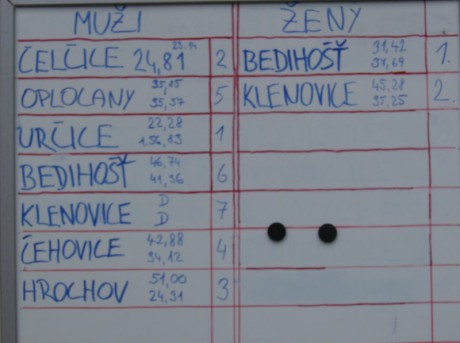 MUŽI
ČELČICE 24,81 23.14 2
OPLOCANY 35,15 35,57 5
URČICE 22,28 1.56,13 1
BEDIHOŠŤ 46,74 41,56 6
KLENOVICE D D 7
ČEHOVICE 42,88 34,12 4
HROCHOV 51,00 24,31 3
ŽENY
BEDIHOŠŤ 31,42 31,69 1.
KLENOVICE 45,28 35,25 2.